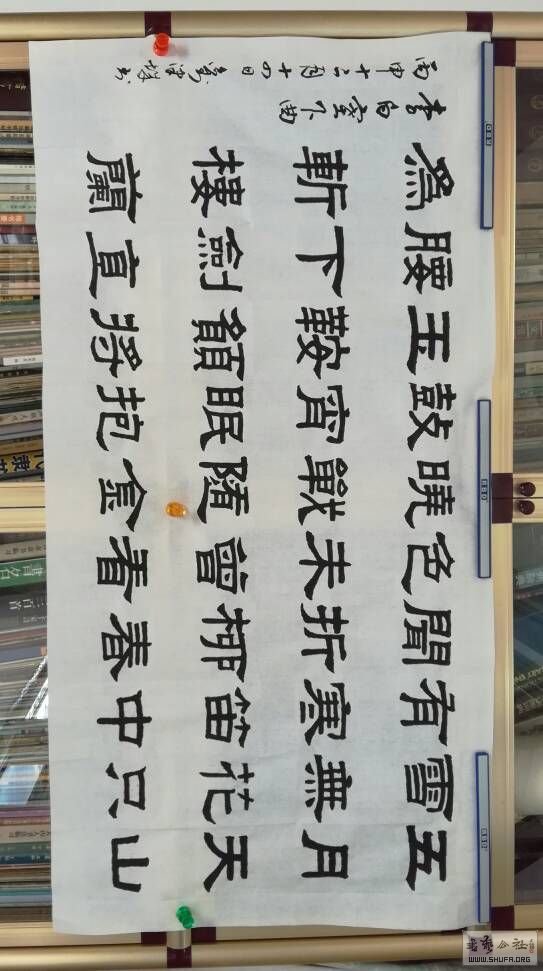 五月天山
雪無花只
有寒笛中
聞折柳春
色未曾看
曉戰隨金
鼓宵眠抱
玉鞍願將
腰下劍直
爲斬樓蘭
李白塞下曲
丙申十二月十四日
書藝公社
WWW.SHUFA.ORG